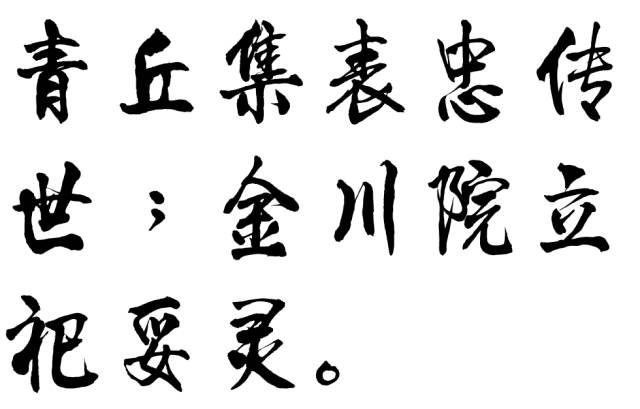 青丘集表忠传
世；金川院立
祀妥灵。